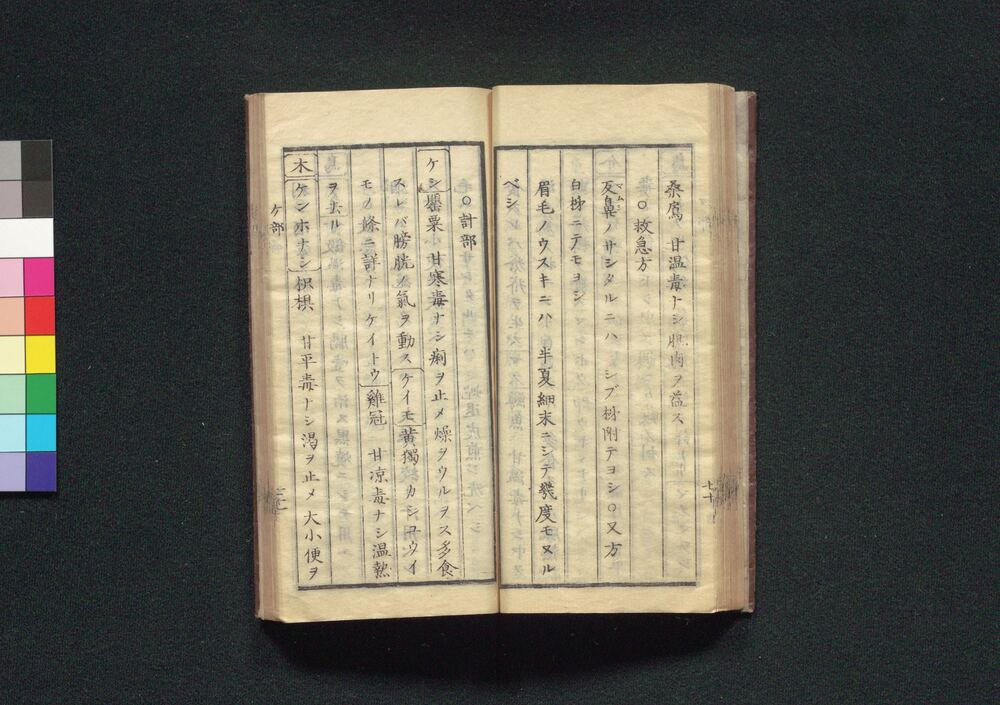 桑鳸 甘温毒ナシ肌肉ヲ益ス
○救急方
反鼻ノサシタルニハ シブ柹附テヨシ○又方
マムシ
白柹ニテモヨシ
眉毛ノウスキニハ 半夏細末ニシテ幾度モヌル
ベシ
七十
○計部
ケシ 罌粟 甘寒毒ナシ痢ヲ止メ燥ヲウルヲス多食
スレバ膀胱ノ氣ヲ動ス ケイモ 黄獨 カシユウイ
モノ條ニ詳ナリ ケイトウ 雞冠 甘涼毒ナシ温熱
ヲ去ル
木 ケンホナシ 枳椇 甘平毒ナシ渇ヲ止メ大小便ヲ
ケ部